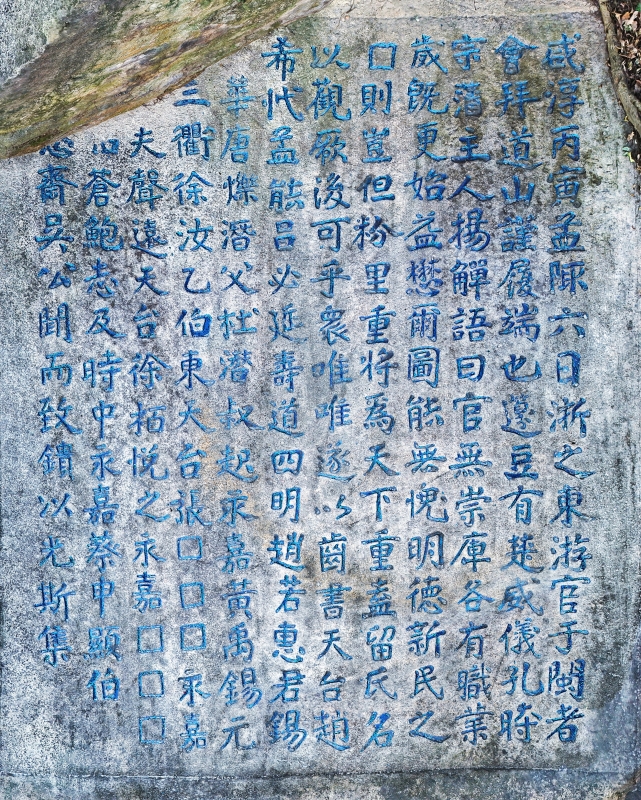 咸淳丙寅孟陬六日浙之東游宦于閩者
會拜道山謹履端也籩豆有楚威儀孔時
宗藩主人揚觶語曰官無崇庳各有職業
歲既更始益懋爾圖能無愧明德新民之
□則豈但粉里重將為天下重盍留氏名
以觀厥後可乎衆唯唯遂以齒書天台趙
希代孟能呂必延壽道四明趙若惠君錫
華唐爍潛父杜潛叔起永嘉黃禹錫元
三衢徐汝乙伯東天台張□□□永嘉
夫聲遠天台徐栢悅之永嘉□□□
心蒼鮑忞及時中永嘉蔡申顯伯
齋吳公聞而致鐨以光斯集